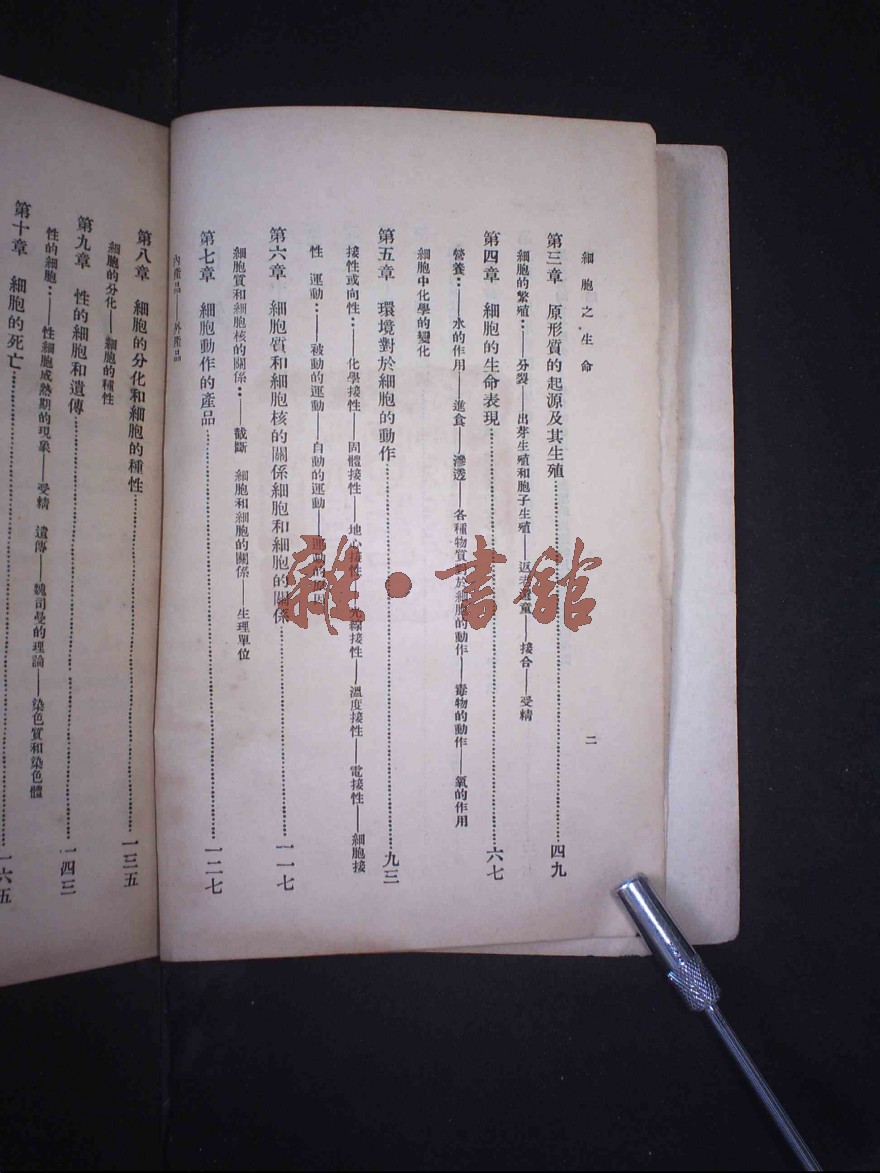 細胞之生命
二
第三章 原形質的起源及其生殖……四九
細胞的繁殖：——分裂——出芽生殖和胞子生殖——返老還童——接合——受精
第四章 細胞的生命表現……六七
營養：——水的作用——進食——滲透——各種物質對於細胞的動作——毒物的動作——氧的作用
細胞中化學的變化
第五章 環境對於細胞的動作……九三
接性或向性：——化學接性——固體接性——地心接性——光線接性——溫度接性——電接性——細胞接
性 運動：——被動的運動——自動的運動——運動的原因
第六章 細胞質和細胞核的關係細胞和細胞的關係……一一七
細胞質和細胞核的關係：——截斷 細胞和細胞的關係——生理單位
第七章 細胞動作的產品……一二七
內產品——外產品
第八章 細胞的分化和細胞的種性……一三五
細胞的分化——細胞的種性
第九章 性的細胞和遺傳……一四三
性的細胞：——性細胞成熟期的現象——受精 遺傳——魏司曼的理論——染色質和染色體
第十章 細胞的死亡……一六五
雜·書館